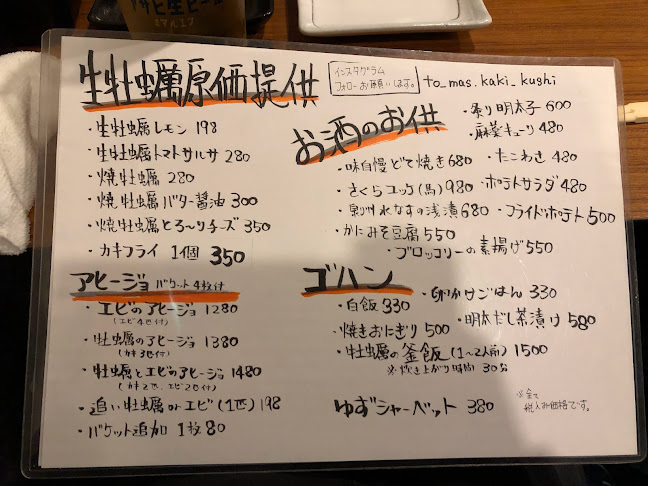 アサヒ生ビール
マルエフ
生牡蠣原価提供
インスタグラム
フォローお願いします。
to_mas.kaki_kushi
・生牡蠣レモン 198
・生牡蠣トマトサルサ 280
・焼牡蠣 280
・焼牡蠣バター醤油 300
・焼牡蠣とろ〜りチーズ 350
・カキフライ 1個 350
アヒージョ バケット4枚付
・エビのアヒージョ 1280
(エビ4ヒ付)
・牡蠣のアヒージョ 1380
(カキ3ヒ付)
・牡蠣とエビのアヒージョ 1480
(カキ2ヒ、エビ2ヒ付)
・追い牡蠣orエビ(1匹) 198
・バケット追加 1枚 80
お酒のお供
・炙り明太子 600
・麻薬キューリ 480
・味自慢どて焼き 680
・たこわさ 480
・さくらユッケ(馬) 980
・ポテトサラダ 480
・泉州水なすの浅漬 680
・フライドポテト 500
・かにみそ豆腐 550
・ブロッコリーの素揚げ 550
ゴハン
・白飯 330
・卵かけごはん 330
・焼きおにぎり 500
・明太だし茶漬け 580
・牡蠣の釜飯(1〜2人前) 1500
※炊き上がり時間 30分
ゆずシャーベット 380
※全て
税込み価格です。